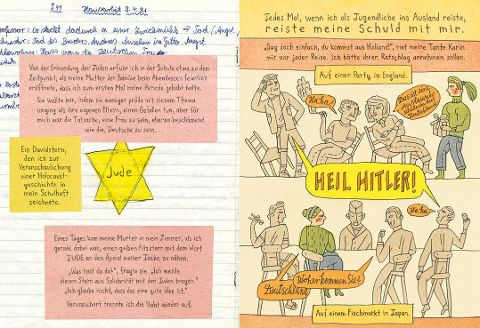 Hausarbeit
Tod / Angst,
Tod des
im Ghetto, Angst,
Von der Ermordung der Juden erfuhr ich in der Schule etwa zu dem
Zeitpunkt, als meine Mutter der Familie beim Abendessen feierlich
eröffnete, dass ich zum ersten Mal meine Periode gehabt hatte.
Sie wollte mir, indem sie weniger prüde mit diesem Thema
umging als ihre eigenen Eltern, einen Gefallen tun, aber für
mich war die Tatsache, eine Frau zu sein, ebenso beschämend
wie die, Deutsche zu sein.
Ein Davidstern,
den ich zur
Veranschaulichung
einer Holocaust-
geschichte in
mein Schulheft
zeichnete.
Jude
Eines Tages kam meine Mutter in mein Zimmer, als ich
gerade dabei war, einen gelben Filzstern mit dem Wort
JUDE an den Ärmel meiner Jacke zu nähen.
„Was tust du da?“, fragte sie. „Ich möchte
diesen Stern aus Solidarität mit den Juden tragen.“
„Ich glaube nicht, dass das eine gute Idee ist.“
Verunsichert trennte ich die Naht wieder auf.
Jedes Mal, wenn ich als Jugendliche ins Ausland reiste,
reiste meine Schuld mit mir.
„Sag doch einfach, du kommst aus Holland!“, riet meine Tante Karin
mir vor jeder Reise. Ich hätte ihren Ratschlag annehmen sollen.
Auf einer Party in England.
Ha ha!
HEIL HITLER!
Ha ha!
Woher kommen Sie?
Deutschland.
Auf einem Fischmarkt in Japan.